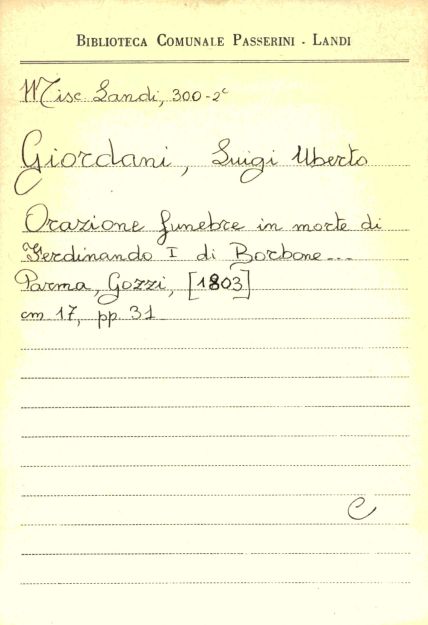 BIBLIOTECA COMUNALE PASSERINI - LANDI
Misc Landi, 300-2ᶜ
Giordani, Luigi Uberto
Orazione funebre in morte di
Ferdinando I di Borbone...
Parma, Gozzi, [1803]
cm 17, pp. 31
C